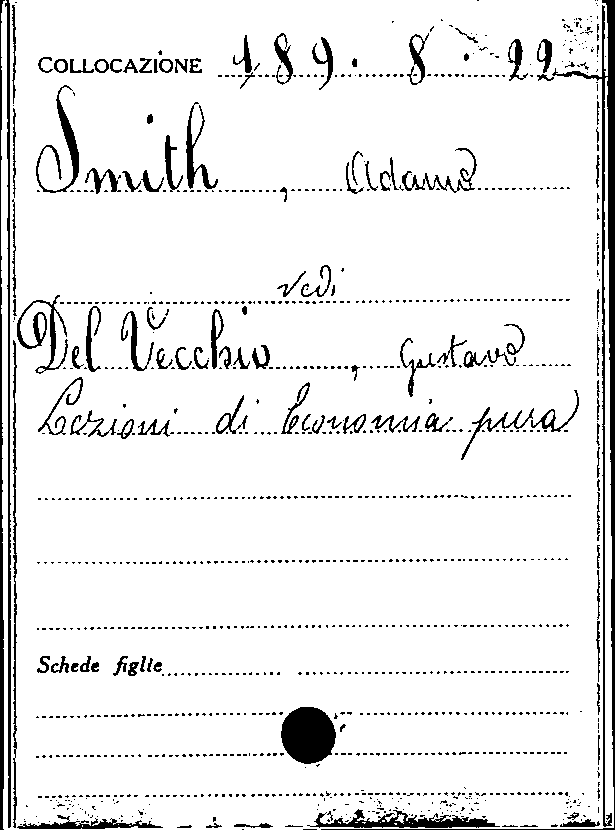 COLLOCAZIONE 189. 8. 22
Smith, Adamo
vedi
Del Vecchio, Gustavo
Lezioni di Economia pura
Schede figlie